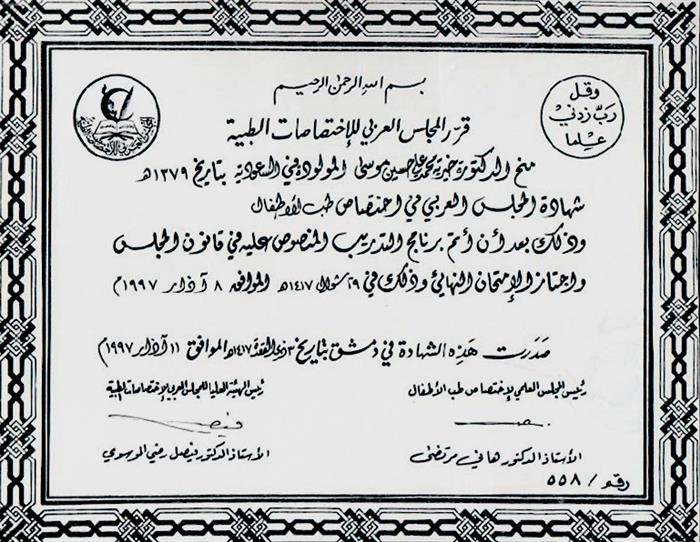 بسم الله الرحمن الرحيم
وقل
رب زدني
علما
قرر المجلس العربي للإختصاصات الطبية
منح الدكتورة خيرية محمد علي حسين موسى المولودة في السعودية بتاريخ ١٣٧٩هـ
شهادة المجلس العربي في اختصاص طب الأطفال
وذلك بعد أن أتم برنامج التدريب المنصوص عليه في قانون المجلس
واجتاز الإمتحان النهائي وذلك في ٢٩ شوال ١٤١٧هـ الموافق ٨ آذار ١٩٩٧م
صدرت هذه الشهادة في دمشق بتاريخ ٣ ذي القعدة ١٤١٧هـ الموافق ١١ آذار ١٩٩٧م
رئيس المجلس العلمي لإختصاص طب الأطفال
رئيس الهيئة العليا للمجلس العربي للإختصاصات الطبية
الأستاذ الدكتور هاني مرتضى
الأستاذ الدكتور فيصل رضي الموسوي
رقم / ٥٥٨